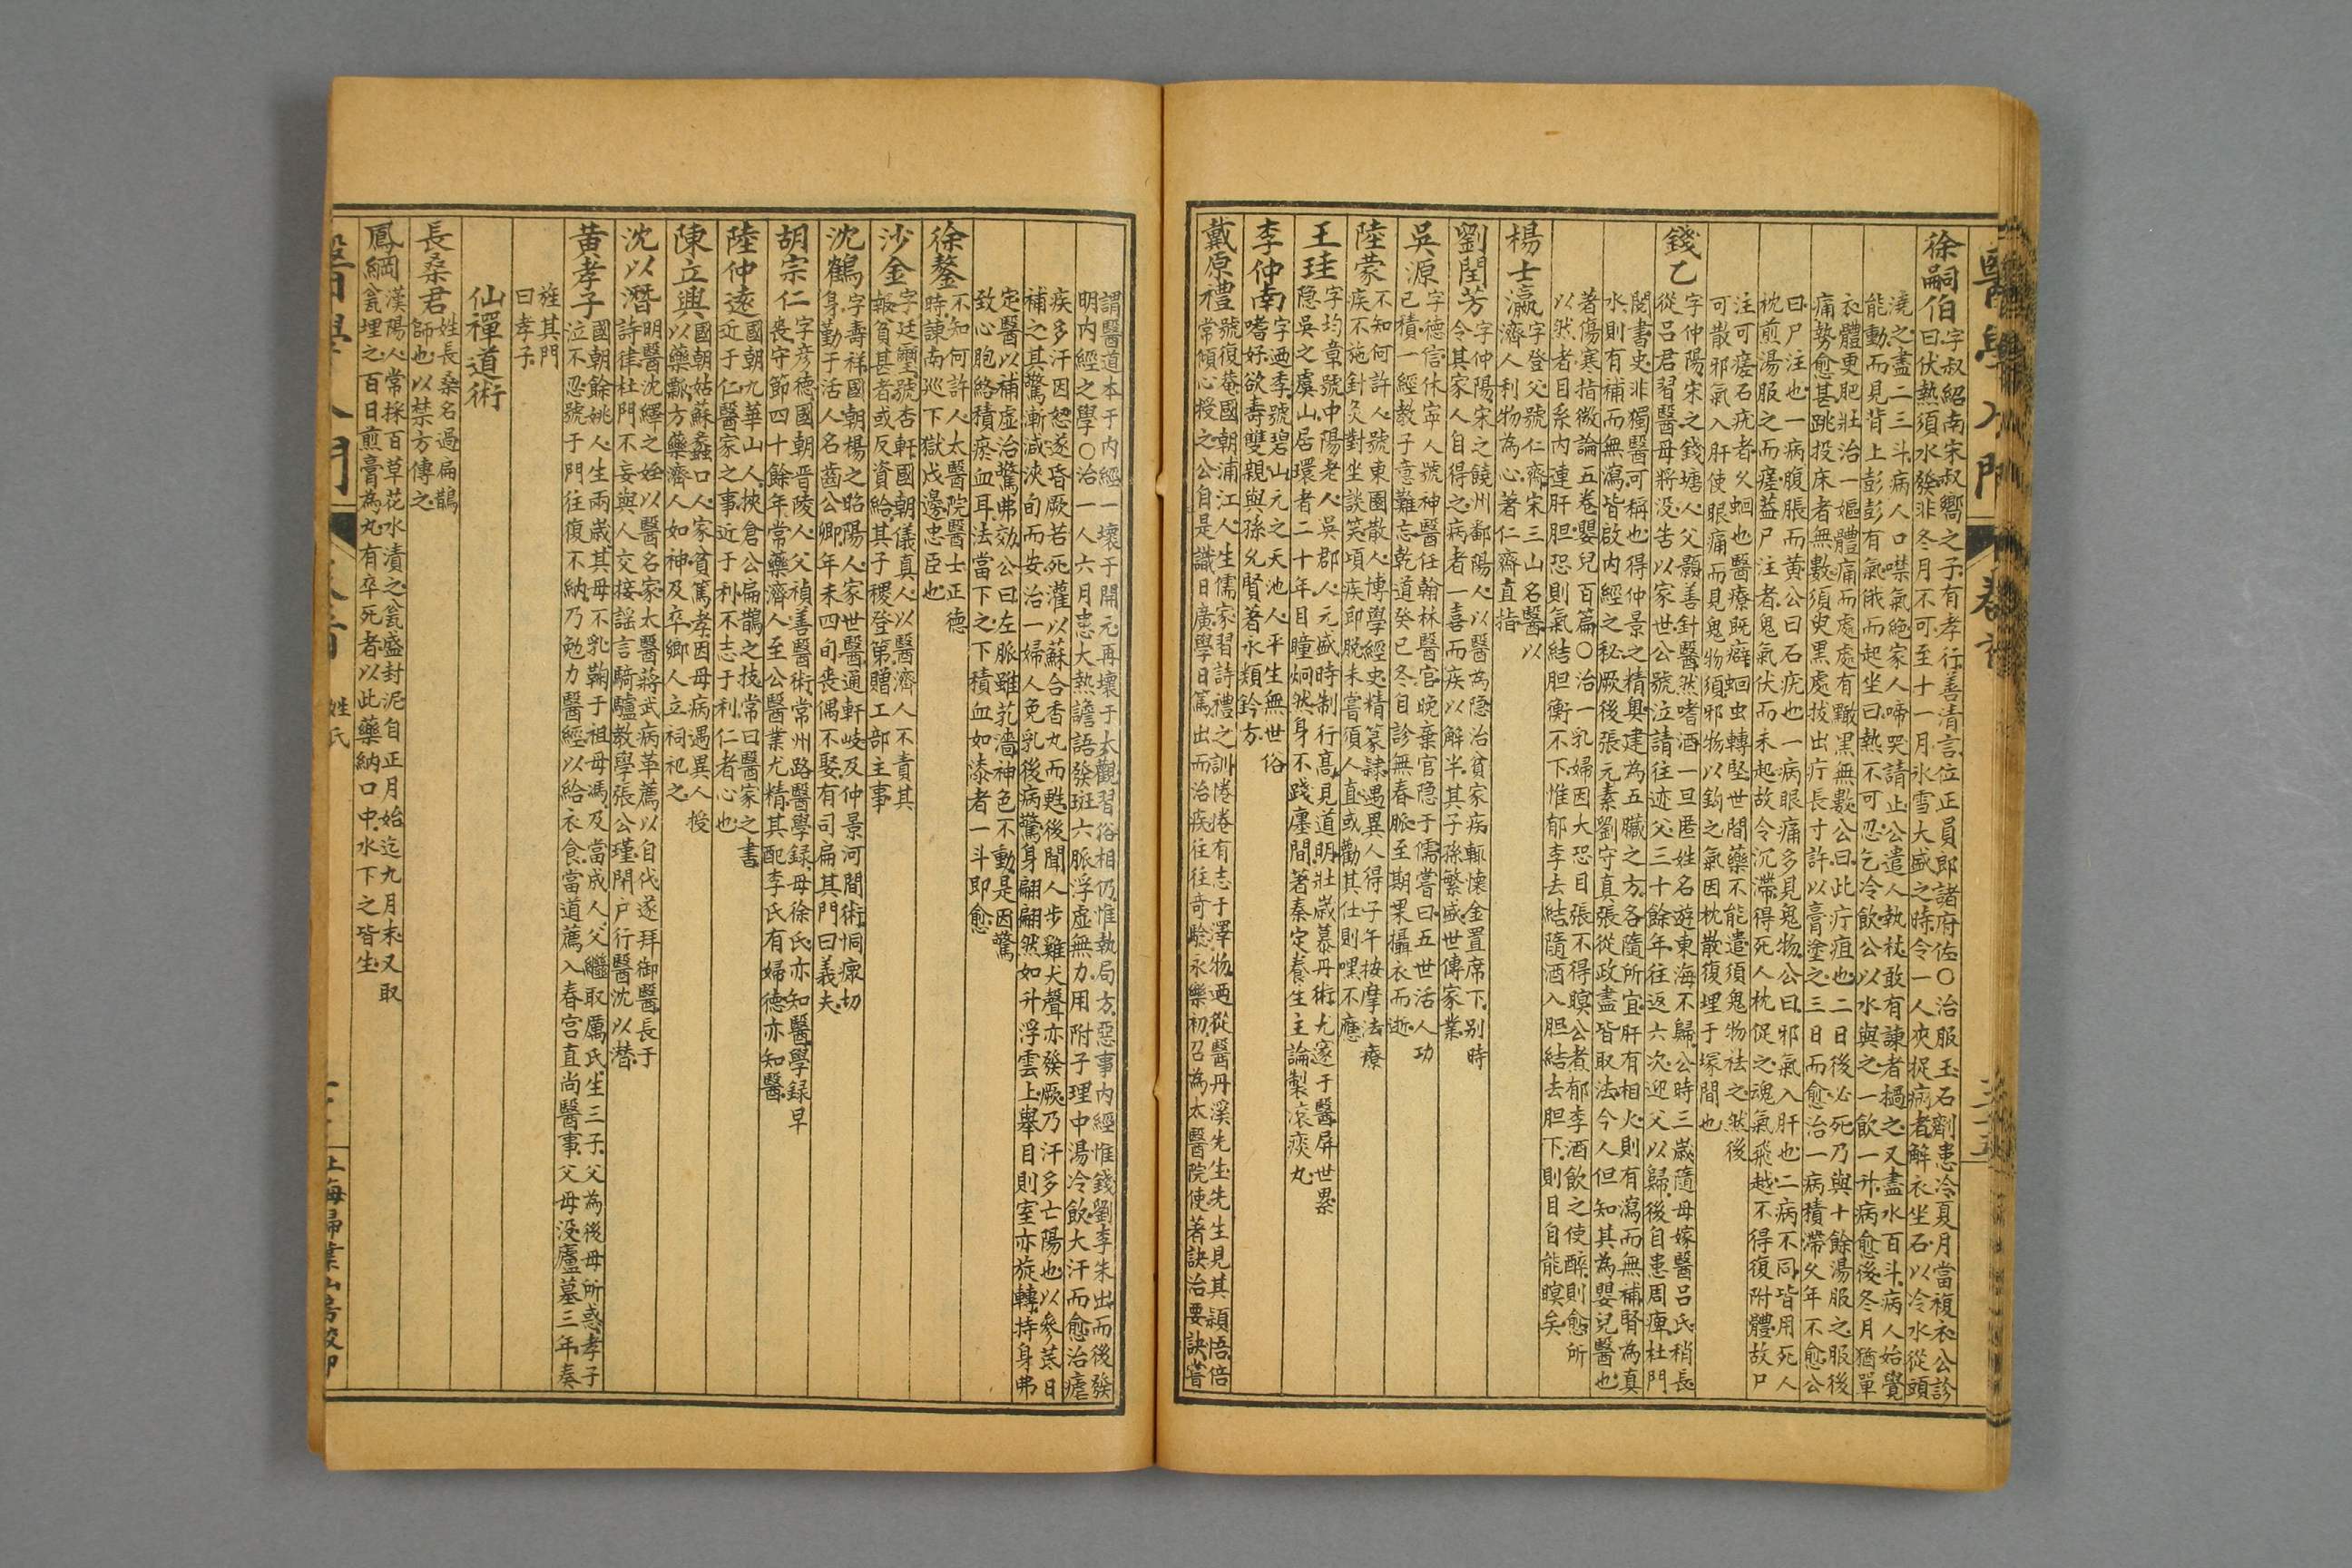 醫學入門 卷首
徐嗣伯
字叔紹南宋叔嚮之子有孝行善清言位正員郎諸府佐○治服玉石劑患冷夏月當複衣公診
曰伏熱須水發非冬月不可至十一月氷雪大盛之時令一人夾捉病者解衣坐石以冷水從頭
澆之盡二三斗病人口噤氣絶家人啼哭請止公遣人執杖敢有諫者撾之又盡水百斗病人始覺
能動而見背上彭彭有氣俄而起坐曰熱不可忍乞冷飲公以水與之一飲一升病愈後冬月猶單
衣體更肥壯治一嫗體痛而處處有黶黑無數公曰此疔疽也二日後必死乃與十餘湯服之服後
痛勢愈甚跳投床者無數須臾黑處拔出疔長寸許以膏塗之三日而愈治一病積滯久年不愈公
曰尸注也一病腹脹而黄公曰石疣也一病眼痛多見鬼物公曰邪氣入肝也二病不同皆用死人
枕煎湯服之而瘥蓋尸注者鬼氣伏而未起故令沉滯得死人枕促之魂氣飛越不得復附體故尸
注可瘥石疣者久蛔也醫療既癖蛔虫轉堅世間藥不能遣須鬼物祛之然後
可散邪氣入肝使眼痛而見鬼物須邪物以鈎之氣因枕散復埋于塚間也
錢乙
字仲陽宋之錢塘人父顥善針醫然嗜酒一旦匿姓名遊東海不歸公時三歲隨母嫁醫吕氏稍長
從吕君習醫母將没告以家世公號泣請往迹父三十餘年往返六次迎父以歸後自患周痺杜門
閱書史非獨醫可稱也得仲景之精奥建為五臟之方各隨所宜肝有相火則有瀉而無補腎為真
水則有補而無瀉皆啟内經之秘厥後張元素劉守真張從政盡皆取法今人但知其為嬰兒醫也
著傷寒指微論五卷嬰兒百篇○治一乳婦因大恐目張不得瞑公煮郁李酒飲之使醉則愈所
以然者目系内連肝胆恐則氣結胆衡不下惟郁李去結隨酒入胆結去胆下則目自能瞑矣
楊士瀛
字登父號仁齋宋三山名醫以
濟人利物為心著仁齋直指
劉閏芳
字仲陽宋之饒州鄱陽人以醫為隐治貧家病輒懷金置席下别時
令其家人自得之病者一喜而疾以解半其子孫繁盛世傳家業
吳源
字德信休寧人號神醫任翰林醫官晚棄官隐于儒嘗曰五世活人功
已積一經教子意難忘乾道癸已冬自診無春脈至期果攝衣而逝
陸蒙
不知何許人號東園散人博學經史精篆隷遇異人得子午按摩法療
疾不施針灸對坐談笑頃疾即脱未嘗須人直或勸其仕則嘿不應
王珪
字均章號中陽老人吳郡人元盛時制行高見道明壯歲慕丹術尤邃于醫屏世累
隐吳之虞山居環者二十年目瞳炯然身不踐塵間著泰定養生主論製滾痰丸
李仲南
字迺季號碧山元之天池人平生無世俗
嗜好欲壽雙親與孫允賢著永類鈐方
戴原禮
號復菴國朝浦江人生儒家習詩禮之訓惓惓有志于澤物迺從醫丹溪先生先生見其頴悟倍
常傾心授之公自是識日廣學日篤出而治疾往往奇騐永樂初召為太醫院使著訣治要訣嘗
謂醫道本于内經一壞于開元再壞于大觀習俗相仍惟執局方惡事内經惟錢劉李朱出而後發
明内經之學○治一人六月患大熱譫語發斑六脈浮虚無力用附子理中湯冷飲大汗而愈治瘧
疾多汗因怒遂昏厥若死灌以蘇合香丸而甦後聞人步雞犬聲亦發厥乃汗多亡陽也以參芪日
補之其驚漸减浹旬而安治一婦人免乳後病驚身翩翩然如升浮雲上舉目則室亦旋轉持身弗
定醫以補虚治驚弗効公曰左脈雖芤濇神色不動是因驚
致心胞絡積瘀血耳法當下之下積血如漆者一斗即愈
徐鏊
不知何許人太醫院醫士正德
時諫南巡下獄戍邊忠臣也
沙金
字廷璽號杏軒國朝儀真人以醫濟人不責其
報貧甚者或反資給其子稷登第贈工部主事
沈鶴
字壽祥國朝楊之昭陽人家世醫通軒岐及仲景河間術恫瘝切
身勤于活人名齒公卿年未四旬喪偶不娶有司扁其門曰義夫
胡宗仁
字彦德國朝晋陵人父禎善醫術常州路醫學録母徐氏亦知醫學録早
喪守節四十餘年常藥濟人至公醫業尤精其配李氏有婦德亦知醫
陸仲遠
國朝九華山人挾倉公扁鵲之技常曰醫家之書
近于仁醫家之事近于利不志于利仁者心也
陳立興
國朝姑蘇蠡口人家貧篤孝因母病遇異人授
以藥瓢方藥濟人如神及卒鄉人立祠祀之
沈以潛
明醫沈繹之姪以醫名家太醫蔣武病革薦以自代遂拜御醫長于
詩律杜門不妄與人交接謡言騎驢教學張公瑾閉户行醫沈以潛
黄孝子
國朝餘姚人生兩歲其母不乳鞠于祖母馮及當成人父繼取厲氏生三子父為後母所惑孝子
泣不忍號于門往復不納乃勉力醫經以給衣食當道薦入春宫直尚醫事父母没廬墓三年奏
旌其門
曰孝子
仙禪道術
長桑君
姓長桑名過扁鵲
師也以禁方傳之
鳳綱
漢陽人常採百草花水漬之瓮盛封泥自正月始迄九月末又取
瓮埋之百日煎膏為丸有卒死者以此藥納口中水下之皆生
醫學入門 卷首 姓氏 上海掃葉山房校印